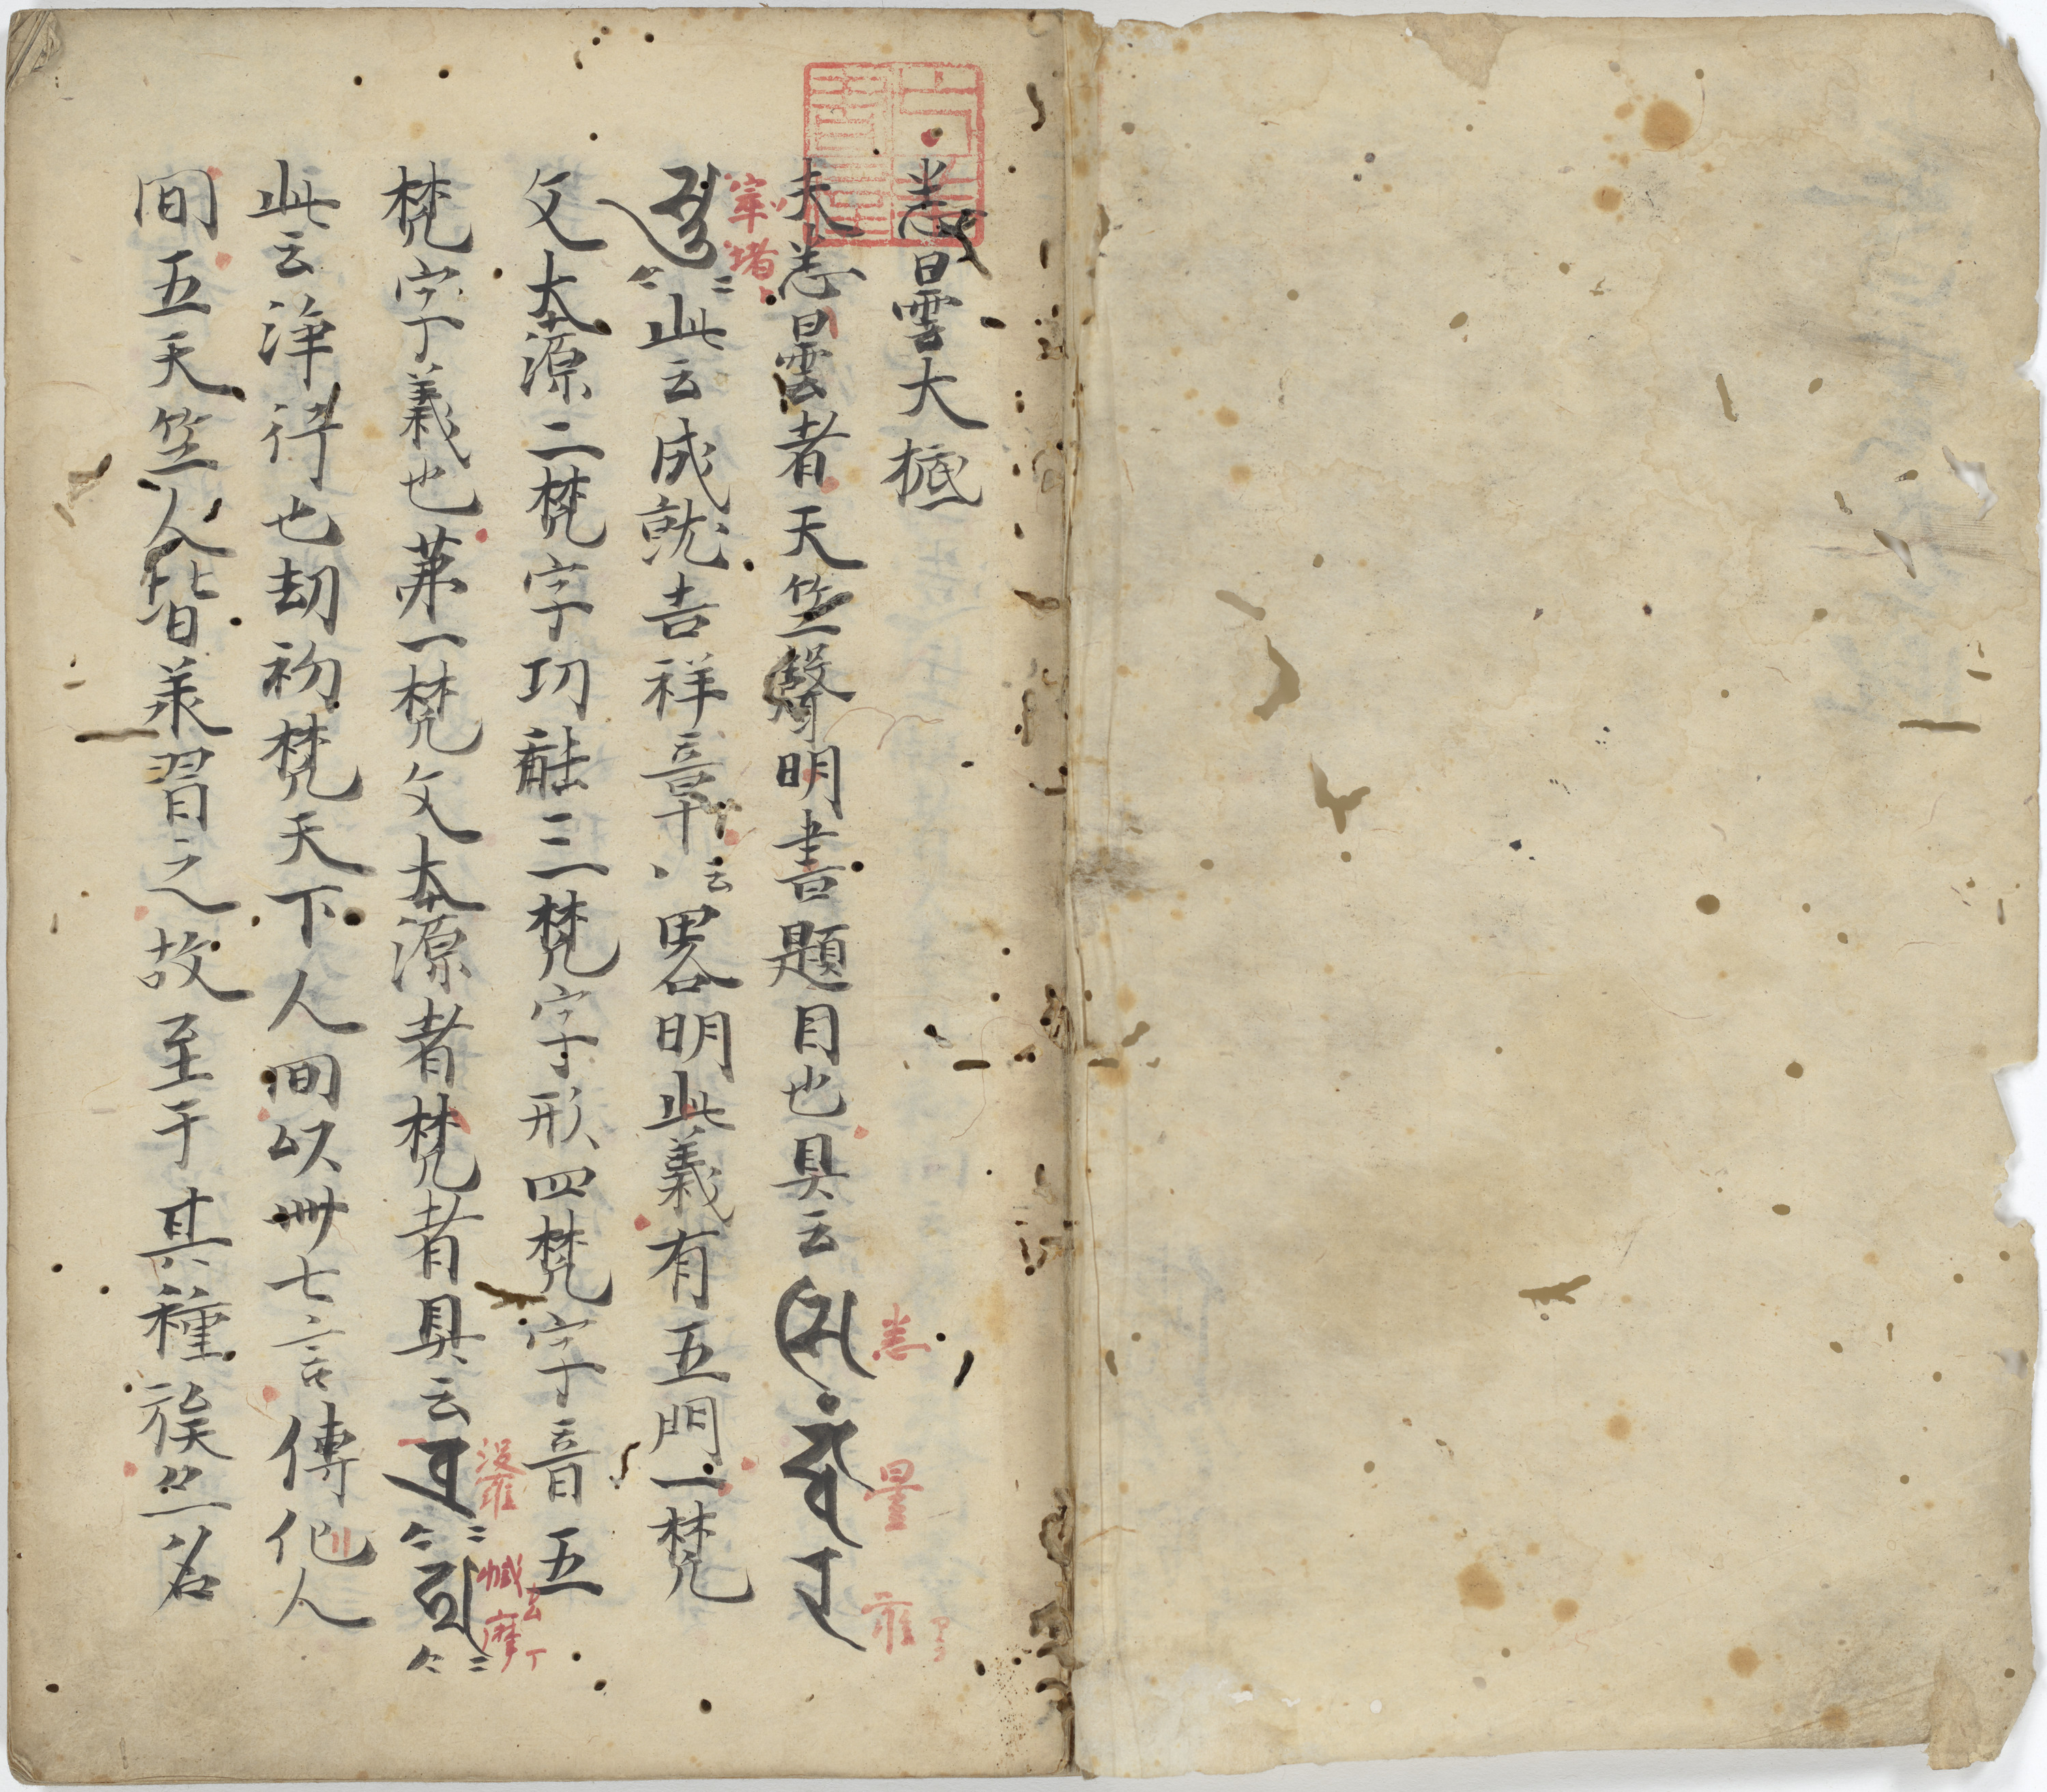 悉曇大概
夫悉曇者天竺聲明書題目也具云𑖭𑖰𑖟𑖿𑖠𑖽 悉曇羅
窣堵 合二此云成就吉祥章云畧明此義有五門一梵
文本源二梵字功能三梵字形四梵字音五
梵字義也苐一梵文本源者梵者具云 沒羅 合二 憾摩 合二
此云淨行也劫初梵天下人間以卌七言傳他人
間五天竺人皆承習之故至于其種族亦名